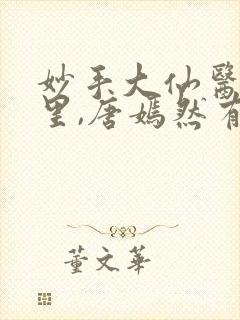 妙手大仙醫
里,唐嫣然有
董文華